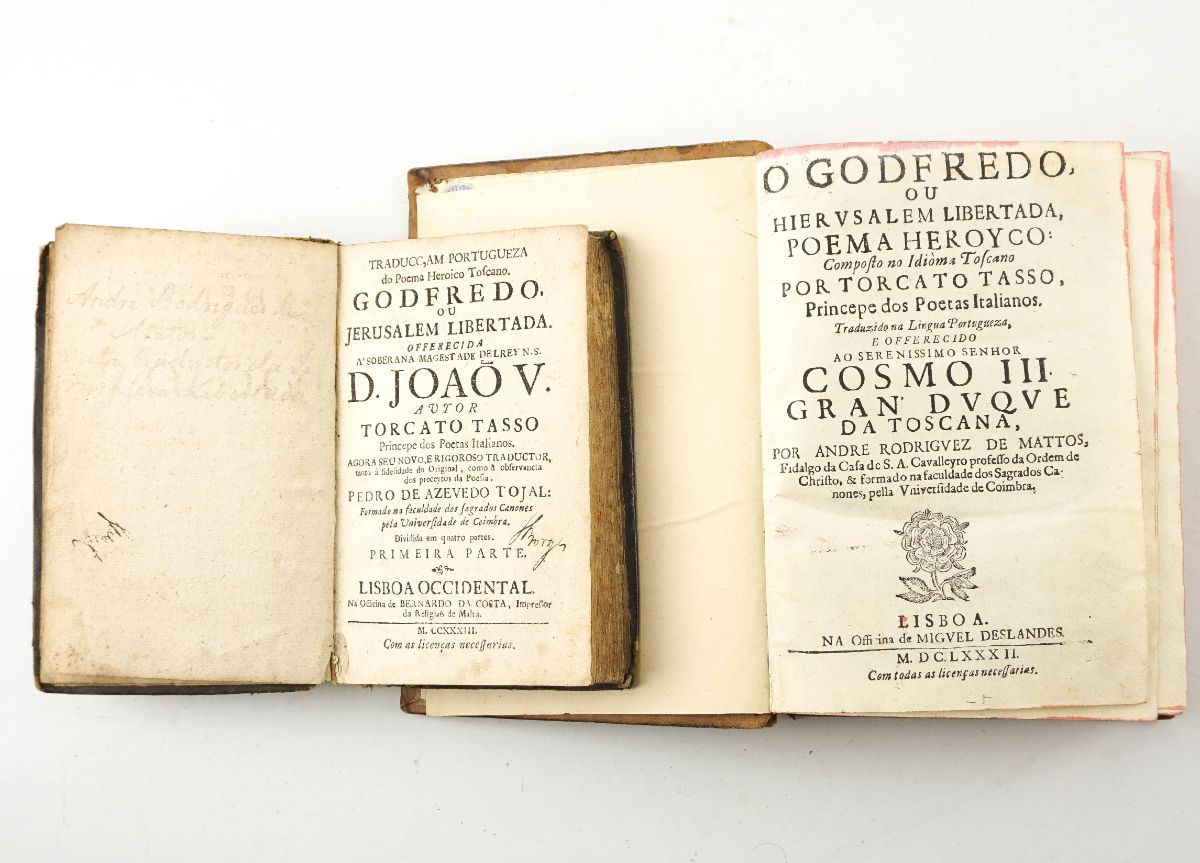 Andre Rodrigues de
Mattos
TRADUCC,AM PORTUGUEZA
do Poema Heroico Toſcano.
GODFREDO,
OU
JERUSALEM LIBERTADA.
OFFERECIDA
A' SOBERANA MAGESTADE DELREY N.S.
D. JOAÕ V.
AVTOR
TORCATO TASSO
Princepe dos Poetas Italianos.
AGORA SEU NOVO, E RIGOROSO TRADUCTOR,
tanto à fidelidade do Original, como à obſervancia
dos preceytos da Poeſia,
PEDRO DE AZEVEDO TOJAL:
Formado na faculdade dos ſagrados Canones
pela Univerſidade de Coimbra.
Dividida em quatro partes.
PRIMEIRA PARTE.
Borges
LISBOA OCCIDENTAL.
Na Officina de BERNARDO DA COSTA, Impreſſor
da Religiaõ de Malta.
M. CCXXXIII.
Com as licenças neceſſarias.
O GODFREDO,
OU
HIERVSALEM LIBERTADA,
POEMA HEROYCO:
Compoſto no Idiòma Toſcano
POR TORCATO TASSO,
Princepe dos Poetas Italianos.
Traduzido na Lingua Portugueza,
E OFFERECIDO
AO SERENISSIMO SENHOR
COSMO III.
GRAN' DVQVE
DA TOSCANA,
POR ANDRE RODRIGVEZ DE MATTOS,
Fidalgo da Caſa de S. A. Cavalleyro profeſſo da Ordem de
Chriſto, & formado na faculdade dos Sagrados Ca-
nones, pella Vniverſidade de Coimbra,
LISBOA.
NA Officina de MIGVEL DESLANDES.
M. DC. LXXXII.
Com todas as licenças neceſſarias.